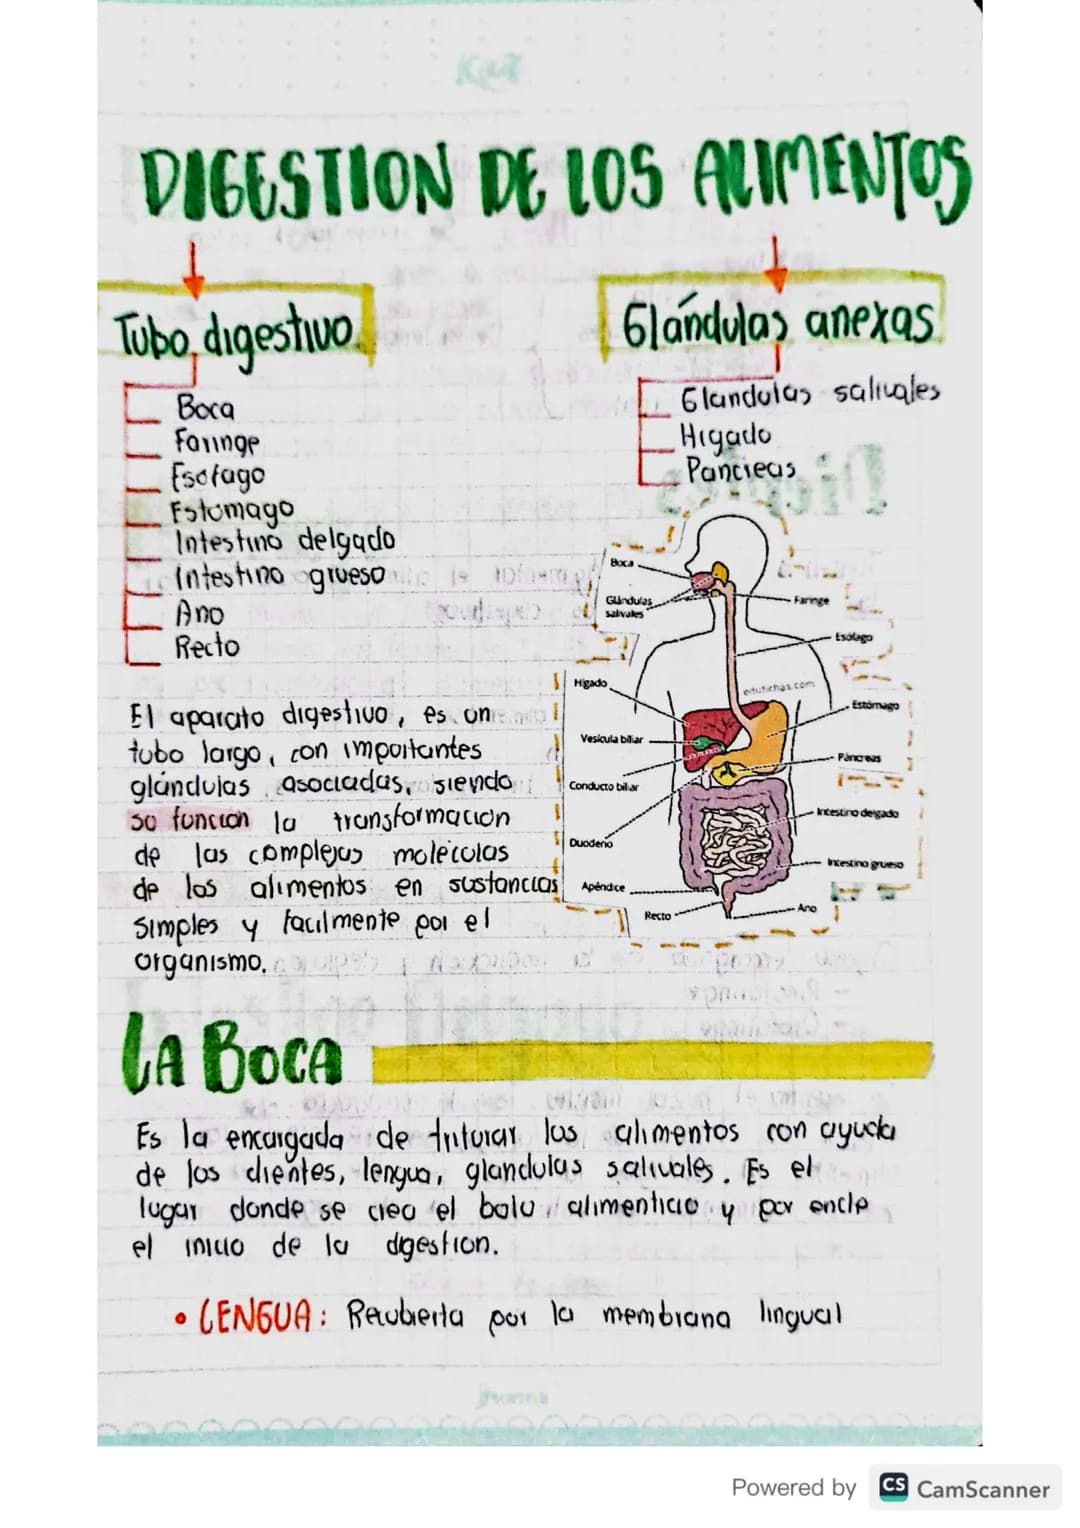 DIGESTION DE LOS ALIMENTOS
Tubo digestivo
Boca
Faringe
Esofago
Estomago
Intestino delgado
Intestino grueso
Ano
Recto
Glándulas anexas
Glandulas salivales
Higado
Pancreas
Boca
Glándulas
salivales
Faringe
Esófago
Hígado
edufichas.com
Estómago
Vesícula biliar
Páncreas
Conducto biliar
Intestino delgado
Duodeno
Intestino grueso
Apéndice
Recto
Ano
El aparato digestivo, es un
tubo largo, con importantes
glándulas asociadas, siendo
su función la transformación
de las complejas moléculas
de los alimentos en sustancias
simples y facilmente por el
organismo.
LA BOCA
Es la encargada de triturar los alimentos con ayuda
de los dientes, lengua, glandulas salivales. Es el
lugar donde se crea el bolo alimenticio y por encle
el inicio de la digestion.
• LENGUA: Recubierta por la membrana lingual
Powered by CS CamScanner